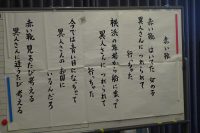 赤い靴
赤い靴 はいてた 女の子
異人さんに つれられて
行っちゃった
横浜の 埠頭から 船に乗って
異人さんに つれられて
行っちゃった
今では 青い目に なっちゃって
異人さんの お国に
いるんだろう
赤い靴 見るたび 考える
異人さんに逢うたび 考える